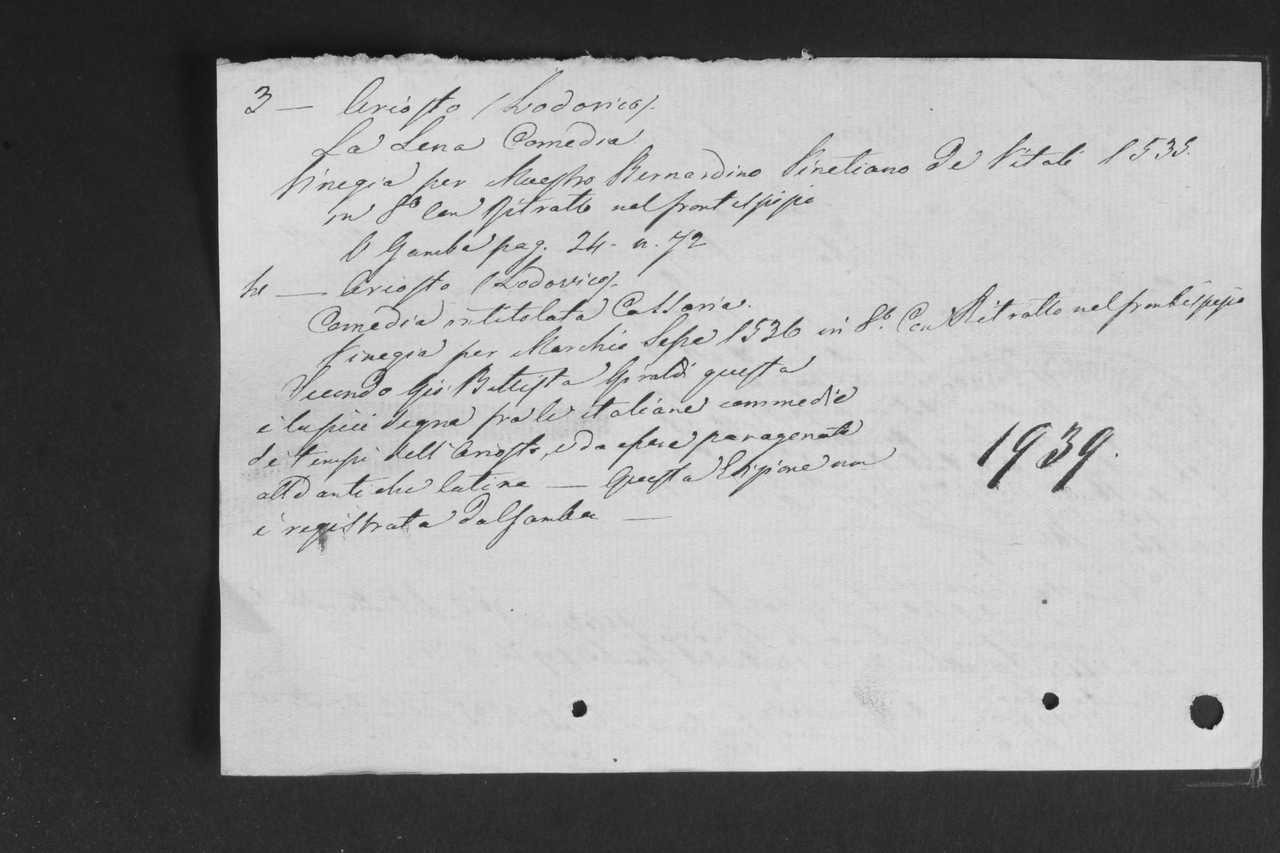 3 — Ariosto (Lodovico).
La Lena Comedia
Vinegia per Maestro Bernardino Vinetiano De Vitali 1535.
in 8º Con Ritratto nel frontespizio
V Gamba pag. 24. n. 72
— Ariosto (Lodovico).
Comedia intitolata Cassaria.
Vinegia per Marchio Sessa 1536 in 8º. Con Ritratto nel frontespizio
Secondo Gio: Battista Giraldi questa
è la più degna fra le italiane commedie
de' tempi dell'Ariosto, e da essere paragonata
alle antiche latine — Questa Edizione non
è registrata dal Gamba —
1939.